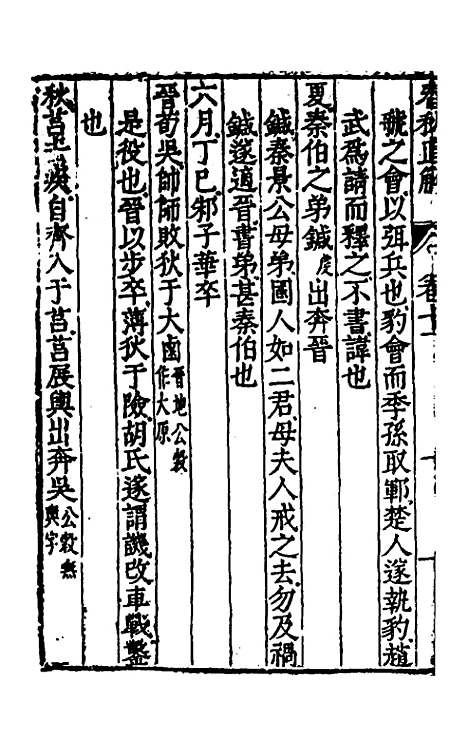 春秋直解 卷十
虢之會以弭兵也豹會而季孫取鄆楚人遂執豹趙
武為請而釋之不書諱也
夏秦伯之弟鍼虔出奔晉
鍼秦景公母弟國人如二君母夫人戒之去勿及禍
鍼遂適晉書弟甚秦伯也
六月丁巳邾子華卒
晉荀吳帥師敗狄于大鹵晉地公穀作大原
是役也晉以步卒薄狄于險胡氏遂謂譏改車戰鑿
也
秋莒去疾自齊入于莒莒展輿出奔吳公穀無輿字